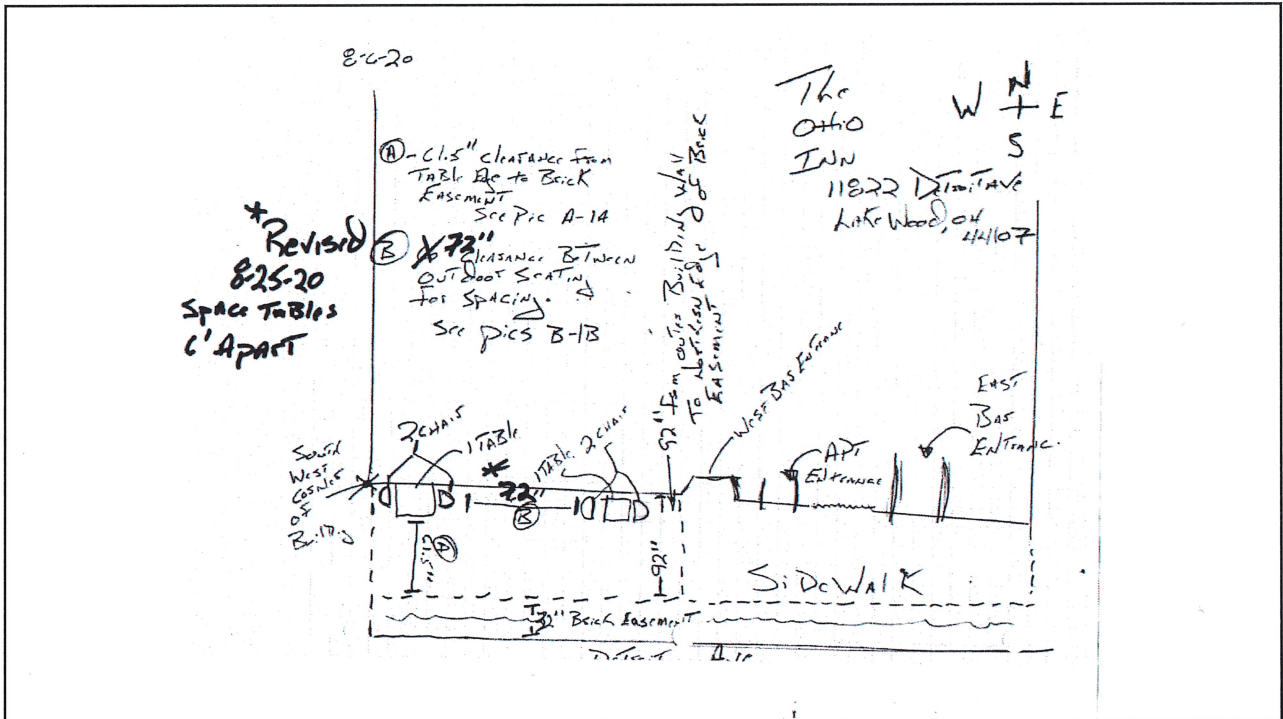 8-6-20
The
Ohio
INN
11822 Detroit Ave
LakeWood, OH
44107
W N E
S
A - 61.5" Clearance From
Table Edge to Brick
Easement
See Pic A-1A
*Revised
8-25-20
Space Tables
6' Apart
B 72"
Clearance Between
Outdoor Seating
for Spacing.
See pics B-1B
92" From Outer Building Wall
To Northern Edge of Brick
Easement
West Bar Entrance
East
Bar
Entrance.
APT
Entrance
South
West
Corner
of
Building
2 Chairs
1 Table
*
72"
B
1 Table
2 Chairs
61.5"
A
92"
SiDeWAlK
32" Brick Easement
Detroit Ave